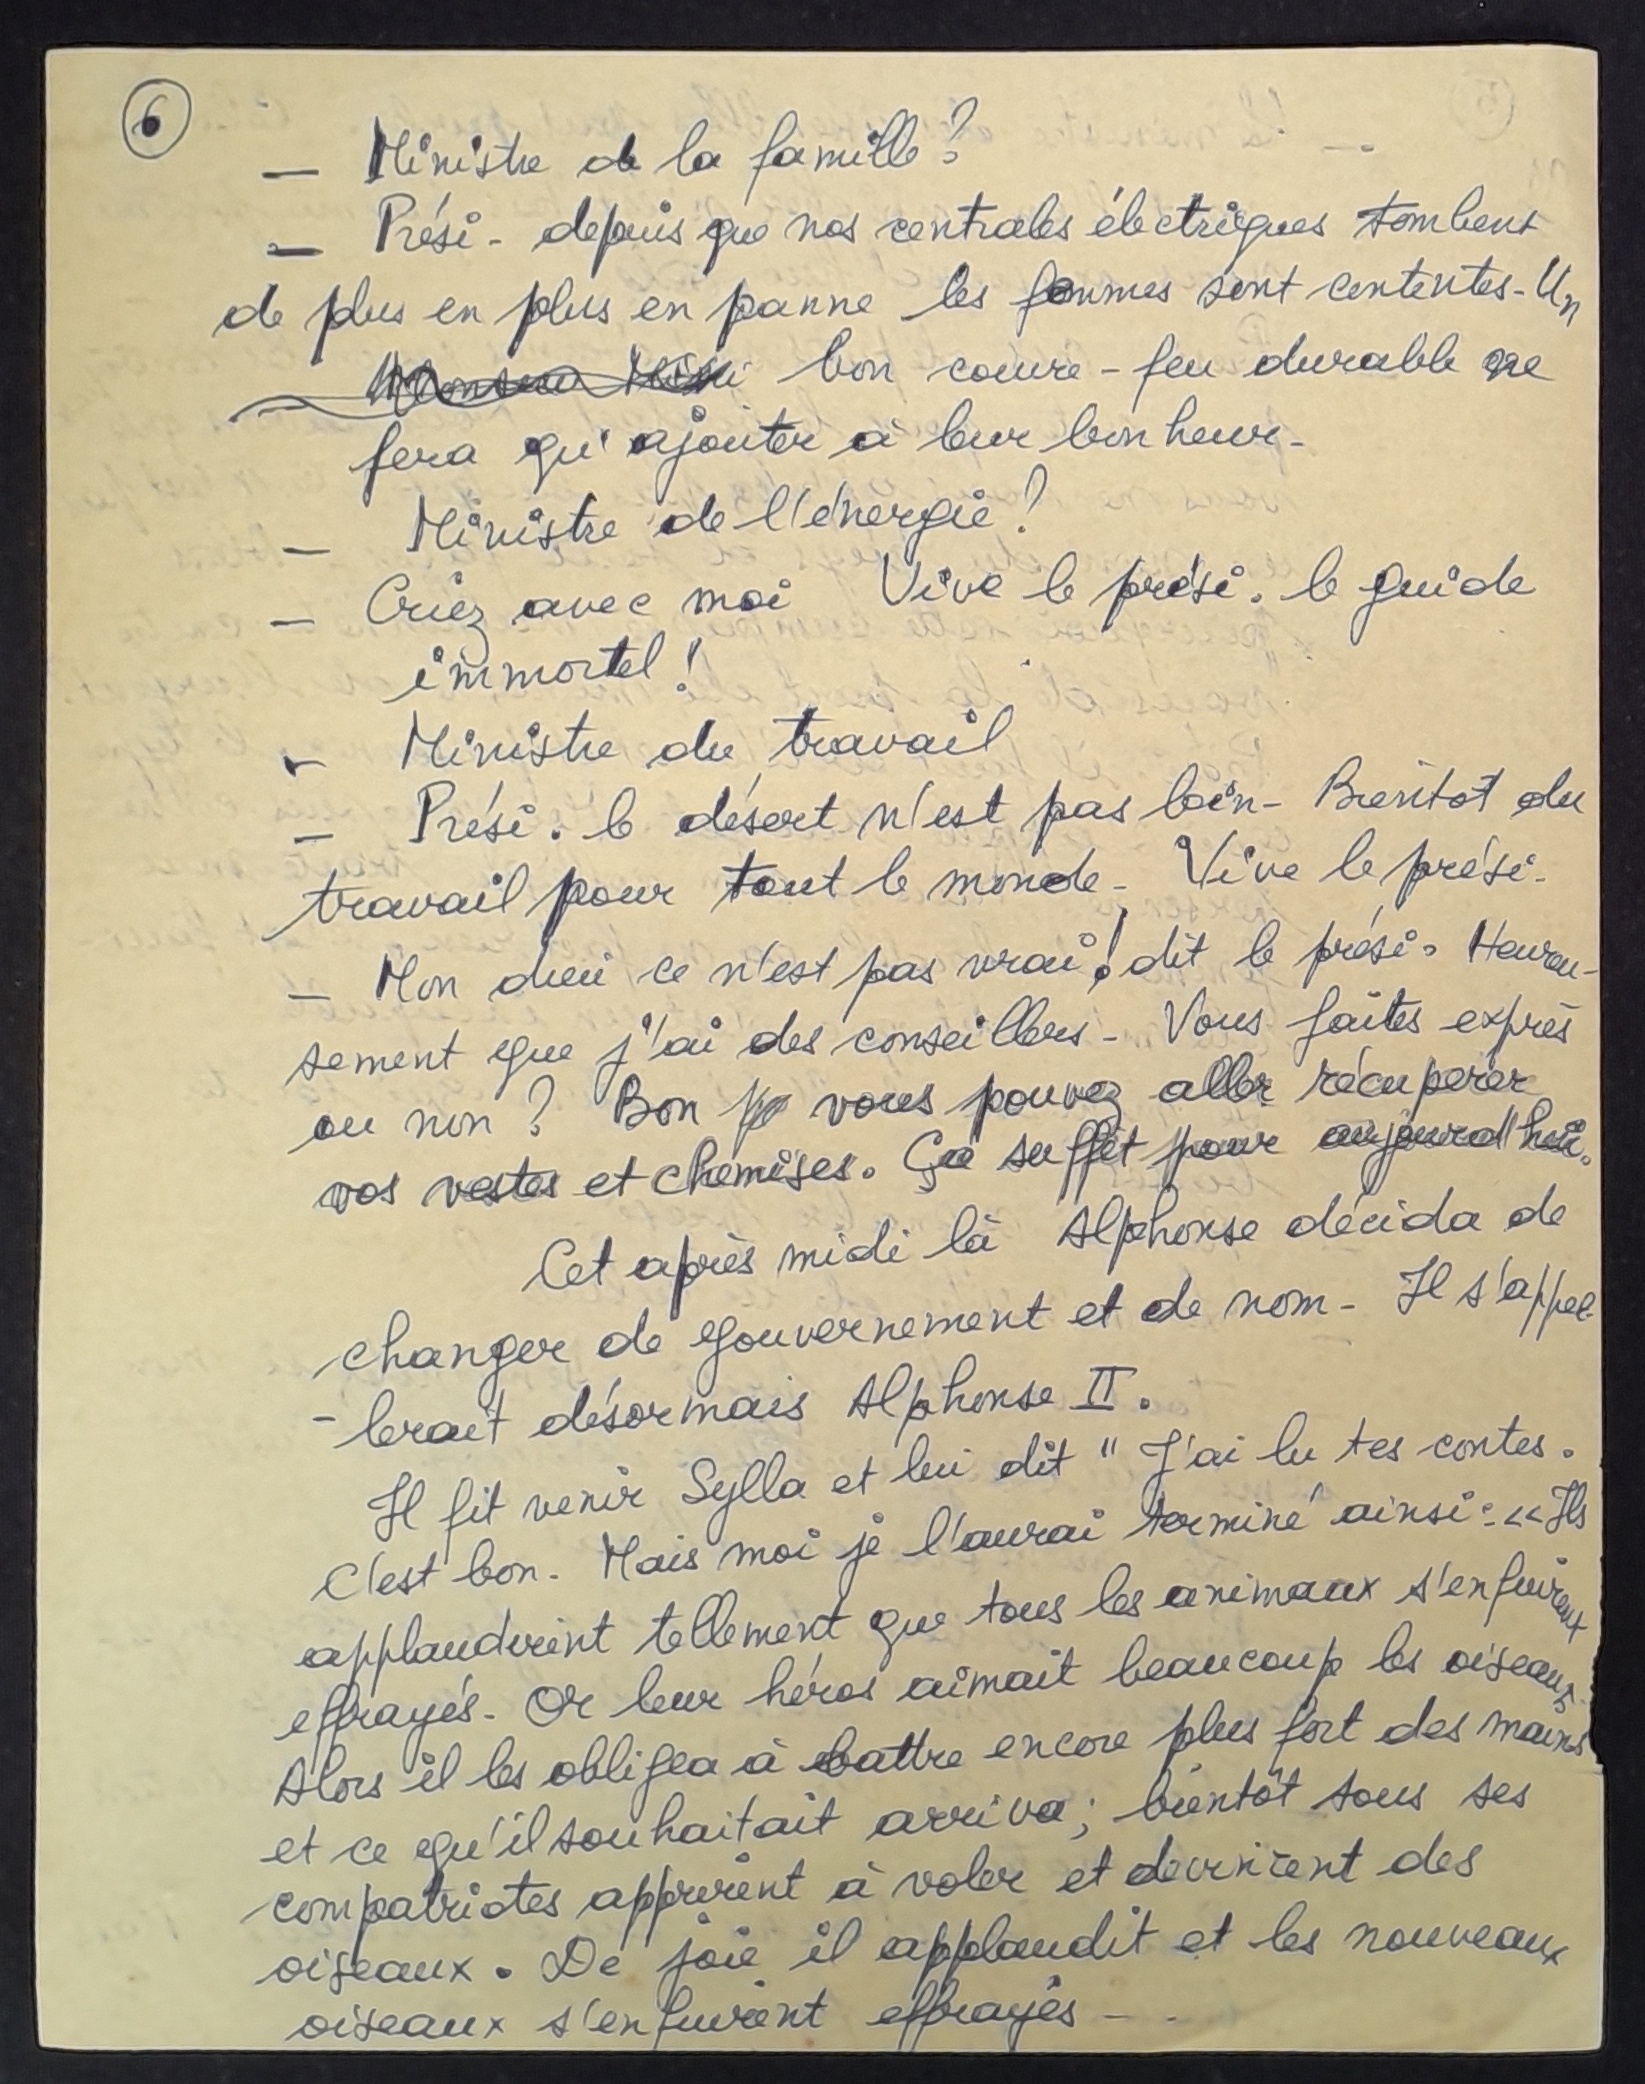 6
— Ministre de la famille ?
— Prési. depuis que nos centrales électriques tombent
de plus en plus en panne les femmes sont contentes. Un
bon couvre-feu durable ne
fera qu'ajouter à leur bonheur.
— Ministre de l'énergie ?
— Criez avec moi Vive le prési. le guide
immortel !
— Ministre du travail
— Prési. le désert n'est pas loin. Bientot du
travail pour tout le monde. Vive le prési.
— Mon dieu ce n'est pas vrai ! dit le prési. Heureu-
sement que j'ai des conseillers. Vous faites exprès
ou non ? Bon vous pouvez aller récuperer
vos vestes et chemises. Ça suffit pour aujourd'hui.
Cet après midi là Alphonse décida de
changer de gouvernement et de nom. Il s'appel-
-lerait désormais Alphonse II.
Il fit venir Sylla et lui dit " J'ai lu tes contes.
C'est bon. Mais moi je l'aurai terminé ainsi : << Ils
applaudirent tellement que tous les animaux s'enfuirent
effrayés. Or leur héros aimait beaucoup les oiseaux.
Alors il les obligea à battre encore plus fort des mains
et ce qu'il souhaitait arriva ; bientôt tous ses
compatriotes apprirent à voler et devinrent des
oiseaux. De joie il applaudit et les nouveaux
oiseaux s'enfuirent effrayés - .